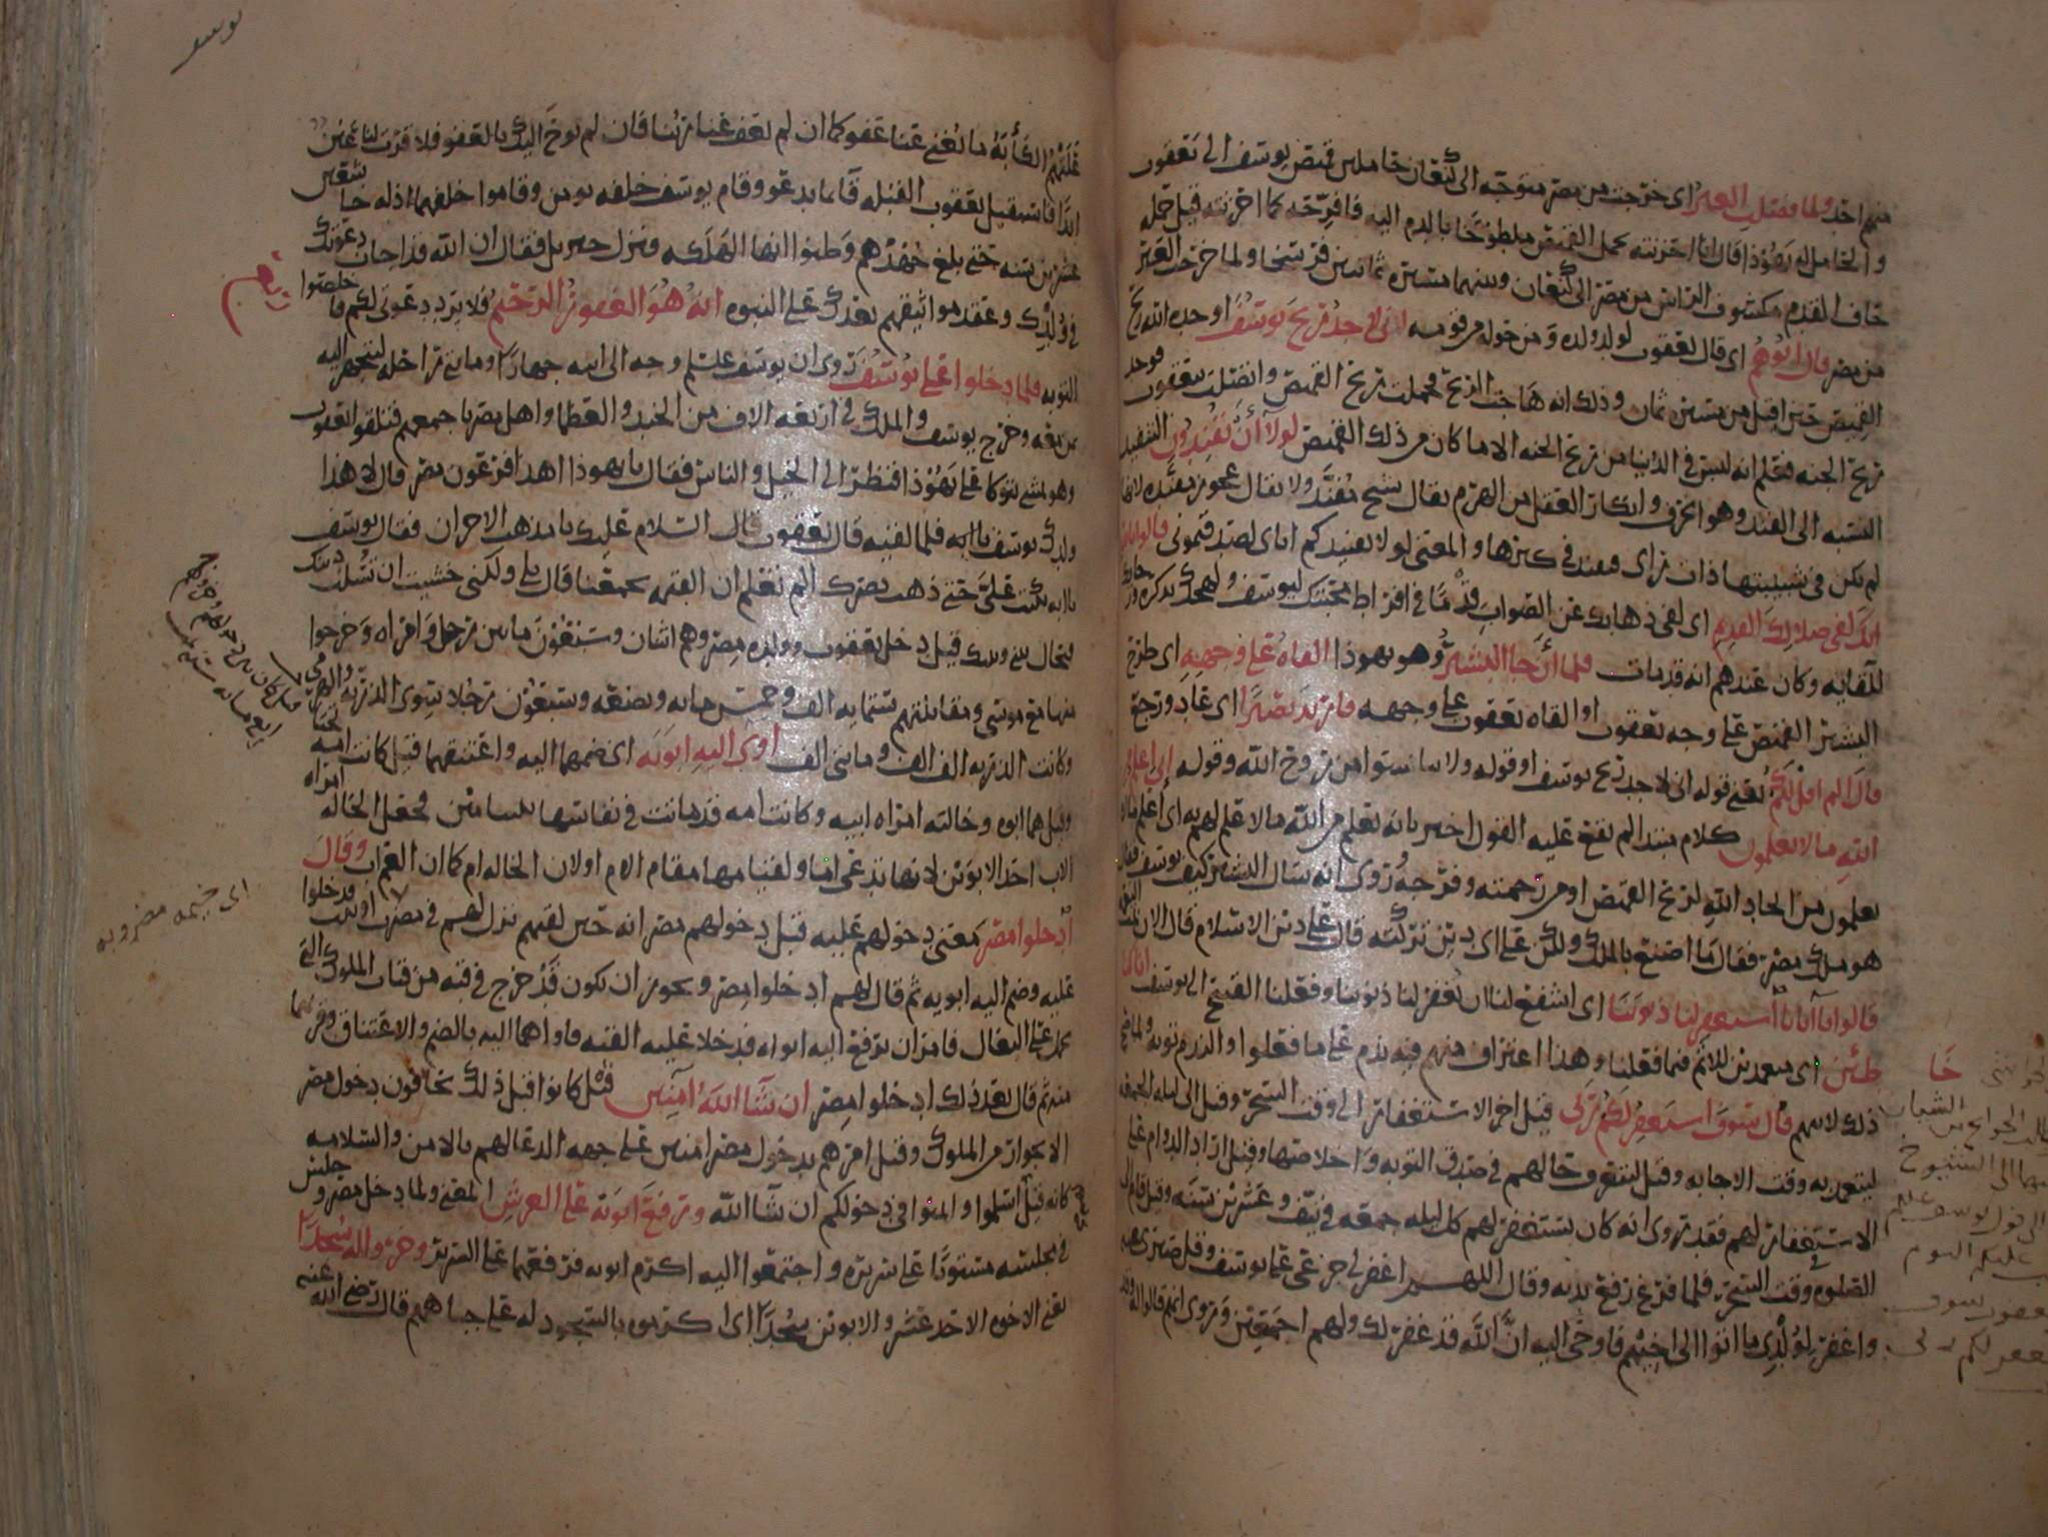 منهم احد ولما فصلت العير اى خرجت من مصر متوجه الى كنعان حاملين قميص يوسف الى يعقوب
والحامل له يهوذا قال انا احزنته بحمل القميص ملطوخا بالدم اليه فافرحه كما احزنته قيل حمله
حاف القدم مكشوف الراس من مصر الى كنعان وبينهما مسيرة ثمانين فرسخا ولما خرجت العير
من مصر قال ابوهم اى قال يعقوب لولد ولده ومن حوله من قومه انى لاجد ريح يوسف اوجده الله ريح
القميص حين اقبل من مسيرة ثمان وذلك انه هاجت الريح فحملت ريح القميص واتصلت بيعقوب فوجد
ريح الجنه فعلم انه ليس فى الدنيا من ريح الجنه الا ما كان من ذلك القميص لولا أن تفندون التفنيد
النسبه الى الفند وهو الخرف وانكار العقل من الهرم يقال شيخ مفند ولا يقال عجوز مفنده لانها
لم تكن فى شبيبتها ذات راى فتفند فى كبرها والمعنى لولا تفنيدكم اياى لصدقتمونى قالوا تالله
انك لفى ضلالك القديم اى لفى ذهابك عن الصواب قدما فى افراط محبتك ليوسف ولهجك بذكره ورجائك
للقايه وكان عندهم انه قد مات فلما أن جا البشير وهو يهوذا القاه على وجهه اى طرح
البشير القميص على وجه يعقوب او القاه يعقوب على وجهه فارتد بصيرا اى عاد ورجع
قال الم اقل لكم يعنى قوله انى لاجد ريح يوسف او قوله ولا تياسوا من روح الله وقوله انى اعلم من
الله ما لا تعلمون كلام مبتدا لم يقع عليه القول اخبر بانه يعلم من الله ما لا علم لهم به اى اعلم ما لا
تعلمون من ايجاد الله لريح القميص او من رحمته وفرجه وروى انه سال البشير كيف يوسف فقال
هو ملك مصر فقال ما اصنع بالملك ولكن على اى دين تركته قال على دين الاسلام قال الان تمت
قالوا يا آبانا استغفر لنا ذنوبنا اى اشفع لنا ان يغفر لنا ذنوبنا وفعلنا القبيح الى يوسف انا كنا
خاطئين اى متعمدين للاثم فيما فعلنا وهذا اعتراف منهم فيه ندم على ما فعلوا والندم توبه
ذلك لابيهم قال سوف استغفر لكم ربى قيل اخر الاستغفار الى وقت السحر وقيل الى ليله الجمعه
ليتعمد به وقت الاجابه وقيل ليتعرف حالهم فى صدق التوبه واخلاصها وقيل اراد الدوام على
الاستغفار لهم فقد روى انه كان يستغفر لهم كل ليله جمعه فى نيف وعشرين سنه وقيل قام الى
الصلوه وقت السحر فلما فرغ رفع يديه وقال اللهم اغفر لى جزعى على يوسف وقله صبرى عنه
واغفر لولدى ما اتوا الى اخيهم فاوحى اليه ان الله قد غفر لك ولهم اجمعين وروى انهم قالوا له وقد
خا
الشباب
الى الشيوخ
الى قول يوسف عليه
عليكم اليوم
يعقوب سوف
استغفر لكم ربى
يوسف
علتهم الكأبة ما يغنى عنا عفوكما ان لم يعف عنا ربنا فان لم يوح اليك بالعفو فلا قرت لنا عين
ابدا فاستقبل يعقوب القبله قايما يدعو وقام يوسف خلفه يومن وقاموا خلفهما اذله خاشعين
عشرين سنه حتى بلغ جهدهم وظنوا انها الهلكه ونزل جبريل فقال ان الله قد اجاب دعوتك
فى ولدك وعقد مواثيقهم بعدك على النبوه انه هو الغفور الرحيم فلا يرد دعوتى لكم فاخلصوا
التوبه فلما دخلوا على يوسف روى ان يوسف عليه السلم وجه الى ابيه جهازا ومايتى راحله ليتجهز اليه
بمن معه وخرج يوسف والملك فى اربعه الاف من الجند والعظما واهل مصر باجمعهم فتلقوا يعقوب
وهو يمشى يتوكا على يهوذا فنظر الى الخيل والناس فقال يا يهوذا اهذا فرعون مصر قال لا هذا
ولدك يوسف يا ابه فلما لقيه قال يعقوب قال السلام عليك يا مذهب الاحزان فقال يوسف
يا ابه بكيت على حتى ذهب بصرك الم تعلم ان القيمه تجمعنا قال بلى ولكنى خشيت ان تسلب دينك
فيحال بينى وبينك قيل دخل يعقوب وولده مصر وهم اثنان وسبعون ما بين رجل وامراه وخرجوا
منها مع موسى ومقاتلتهم ستمايه الف وخمس مايه وبضعه وسبعون رجلا سوى الذريه والهرمى
وكانت الذريه الف الف ومايتى الف اوى اليه ابويه اى ضمهما اليه واعتنقهما قيل كانت امه
وقيل هما ابوه وخالته امراه ابيه وكانت امه قد ماتت فى نفاسها بنيامين فجعل الخاله
الاب احد الابوين لانها تدعى اما ولقيامها مقام الام او لان الخاله ام كما ان العم اب وقال
ادخلوا مصر معنى دخولهم عليه قبل دخولهم مصر انه حين لقيهم نزل لهم فى مضرب او بيت فدخلوا
عليه وضم اليه ابويه ثم قال لهم ادخلوا مصر ويجوز ان يكون قد خرج فى قبه من قباب الملوك التى
تحمل على البغال فامر ان يرفع اليه ابواه فدخلا عليه القبه فاواهما اليه بالضم والاعتناق وقربهما
منه ثم قال بعد ذلك ادخلوا مصر ان شا الله آمنين قيل كانوا قبل ذلك يخافون دخول مصر
الا بجواز من الملوك وقيل امرهم بدخول مصر امنين على جهه الدعا لهم بالامن والسلامه
كانه قيل اسلموا وامنوا فى دخولكم ان شا الله ورفع ابويه على العرش المعنى ولما دخل مصر وجلس
فى مجلسه مستويا على سريره واجتمعوا اليه اكرم ابويه فرفعهما على السرير وخروا له سجدا
يعنى الاخوه الاحد عشر والابوين سجدا اى اكرموه بالسجود له على جباههم قال رضى الله عنه
اى خيمه مضروبه